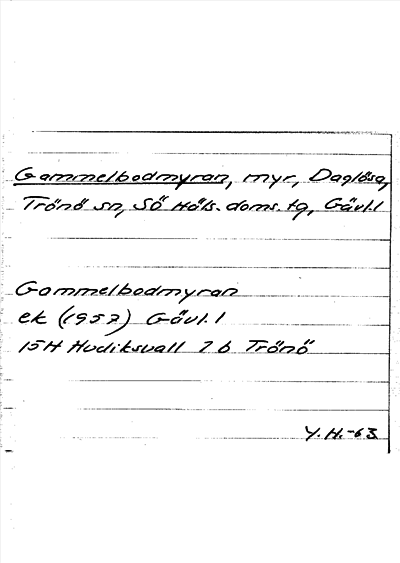 Gammelbodmyran, myr, Daglösa,
Trönö sn, Sö Häls. doms. tg, Gävl. l
Gammelbodmyran
ek (1957) Gävl. l
15H Hudiksvall 2 b Trönö
Y. H. -63